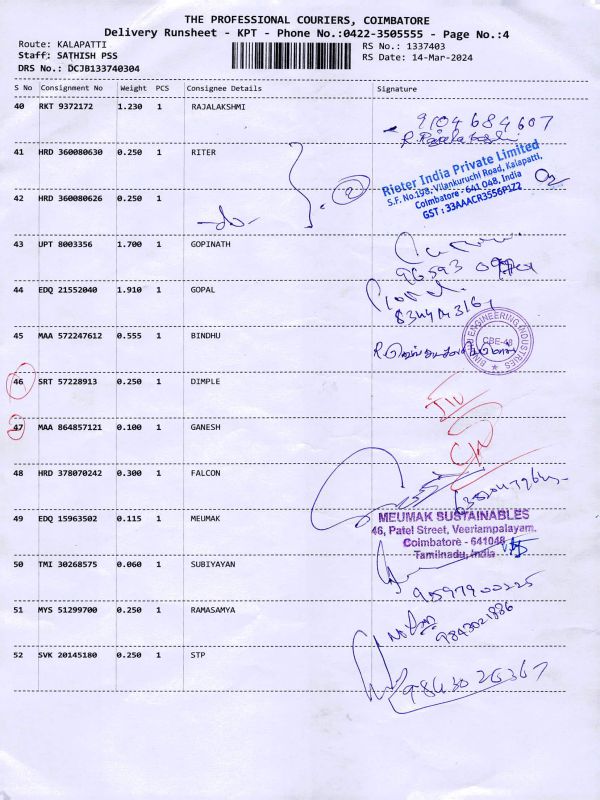 THE PROFESSIONAL COURIERS, COIMBATORE
Delivery Runsheet - KPT - Phone No.:0422-3505555 - Page No.:4
Route: KALAPATTI
Staff: SATHISH PSS
DRS No.: DCJB133740304
RS No.: 1337403
RS Date: 14-Mar-2024
S No Consignment No Weight PCS Consignee Details Signature
40 RKT 9372172 1.230 1 RAJALAKSHMI
9104684607
41 HRD 360080630 0.250 1 RITER
Rieter India Private Limited
S.F. No.198, Vilankuruchi Road, Kalapatti,
Coimbatore - 641 048, India
GST : 33AAACR3556P1Z2
42 HRD 360080626 0.250 1
2
43 UPT 8003356 1.700 1 GOPINATH
44 EDQ 21552040 1.910 1 GOPAL
45 MAA 572247612 0.555 1 BINDHU
ENGINEERING INDUSTRIES
CBE-48
46 SRT 57228913 0.250 1 DIMPLE
47 MAA 864857121 0.100 1 GANESH
48 HRD 378070242 0.300 1 FALCON
49 EDQ 15963502 0.115 1 MEUMAK
MEUMAK SUSTAINABLES
46, Patel Street, Veeriampalayam.
Coimbatore - 641048
Tamilnadu, India
50 TMI 30268575 0.060 1 SUBIYAYAN
95979 00225
51 MYS 51299700 0.250 1 RAMASAMYA
9843021886
52 SVK 20145180 0.250 1 STP